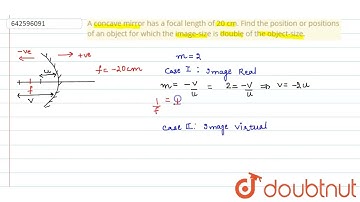 642596091
A concave mirror has a focal length of 20 cm. Find the position or positions
of an object for which the image-size is double of the object-size.
-ve
+ve
f = -20cm
u
f
v
m = 2
Case I : Image Real
m = -v/u = 2 = -v/u ⇒ v = -2u
1/f =
Case II : Image virtual
doubtnut